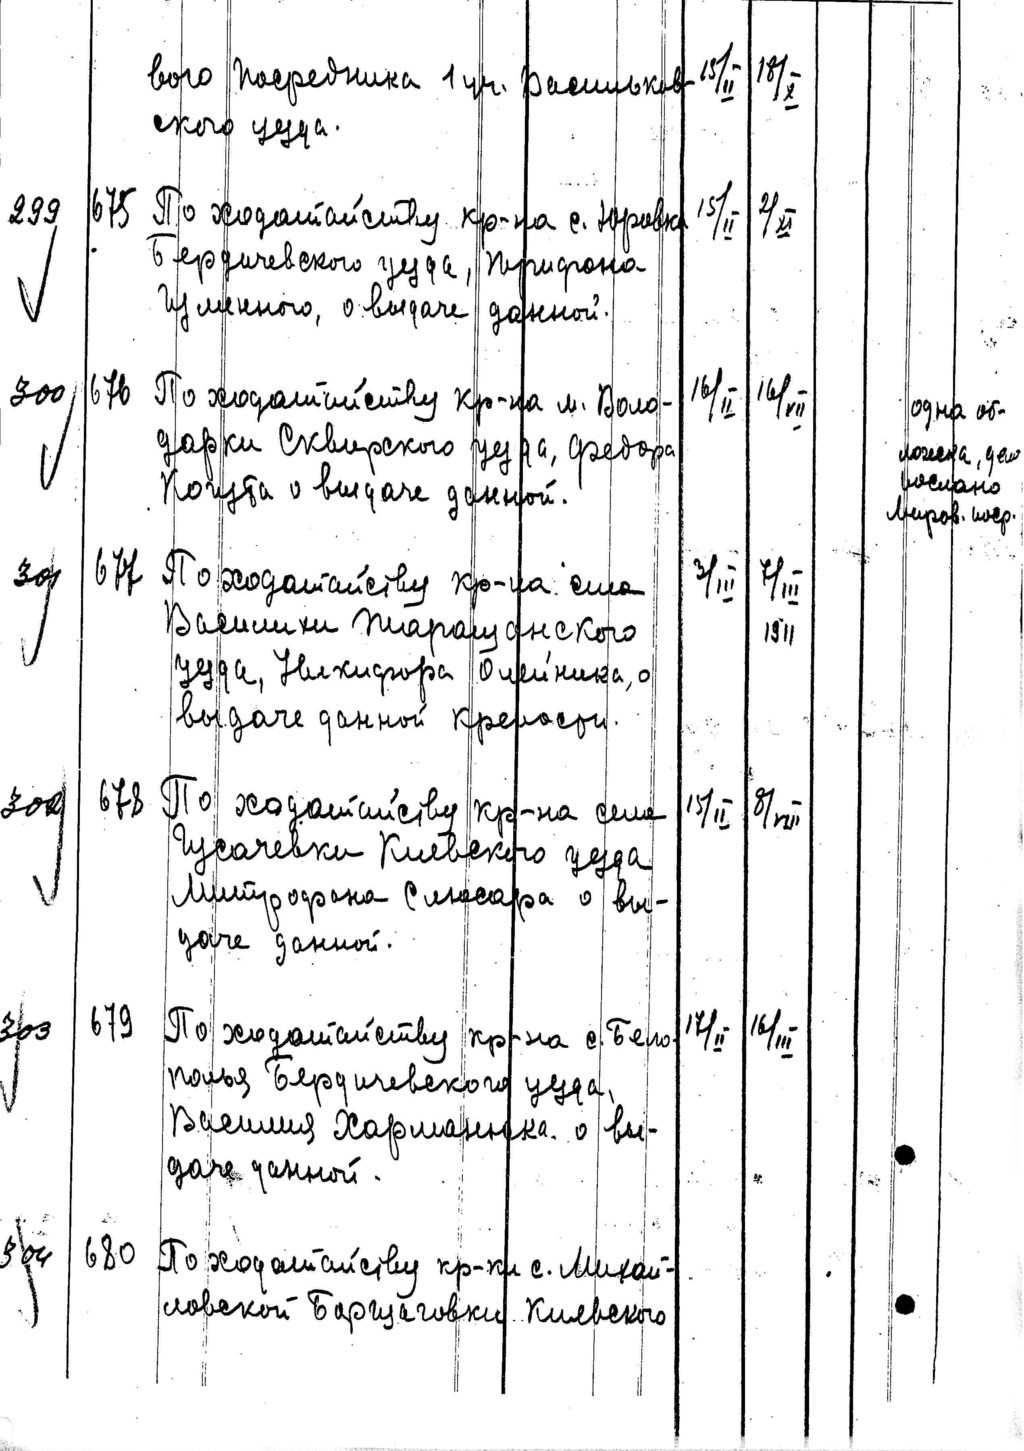 вого посредника 1 уч. Васильков- 15/II 18/X
ского уезда.
299 675 По ходатайству кр-на с. Юровка 15/II 2/XI
Бердичевского уезда, Трифона
Гуменного, о выдаче данной.
300 676 По ходатайству кр-на м. Воло- 16/II 16/VII
дарки Сквирского уезда, Федора
Когута о выдаче данной.
одна об-
ложка, дело
послано
Миров. поср.
301 677 По ходатайству кр-на села 3/III 7/III
Василихи Таращанского 1911
уезда, Никифора Олейника, о
выдаче данной крепости.
302 678 По ходатайству кр-на села 15/II 8/VIII
Гусачевки Киевского уезда
Митрофана Слюсара о вы-
даче данной.
303 679 По ходатайству кр-на с. Бело- 17/II 16/III
полья Бердичевского уезда,
Василия Харманюка. о вы-
даче данной.
304 680 По ходатайству кр-ки с. Михай-
ловской Борщаговки Киевского